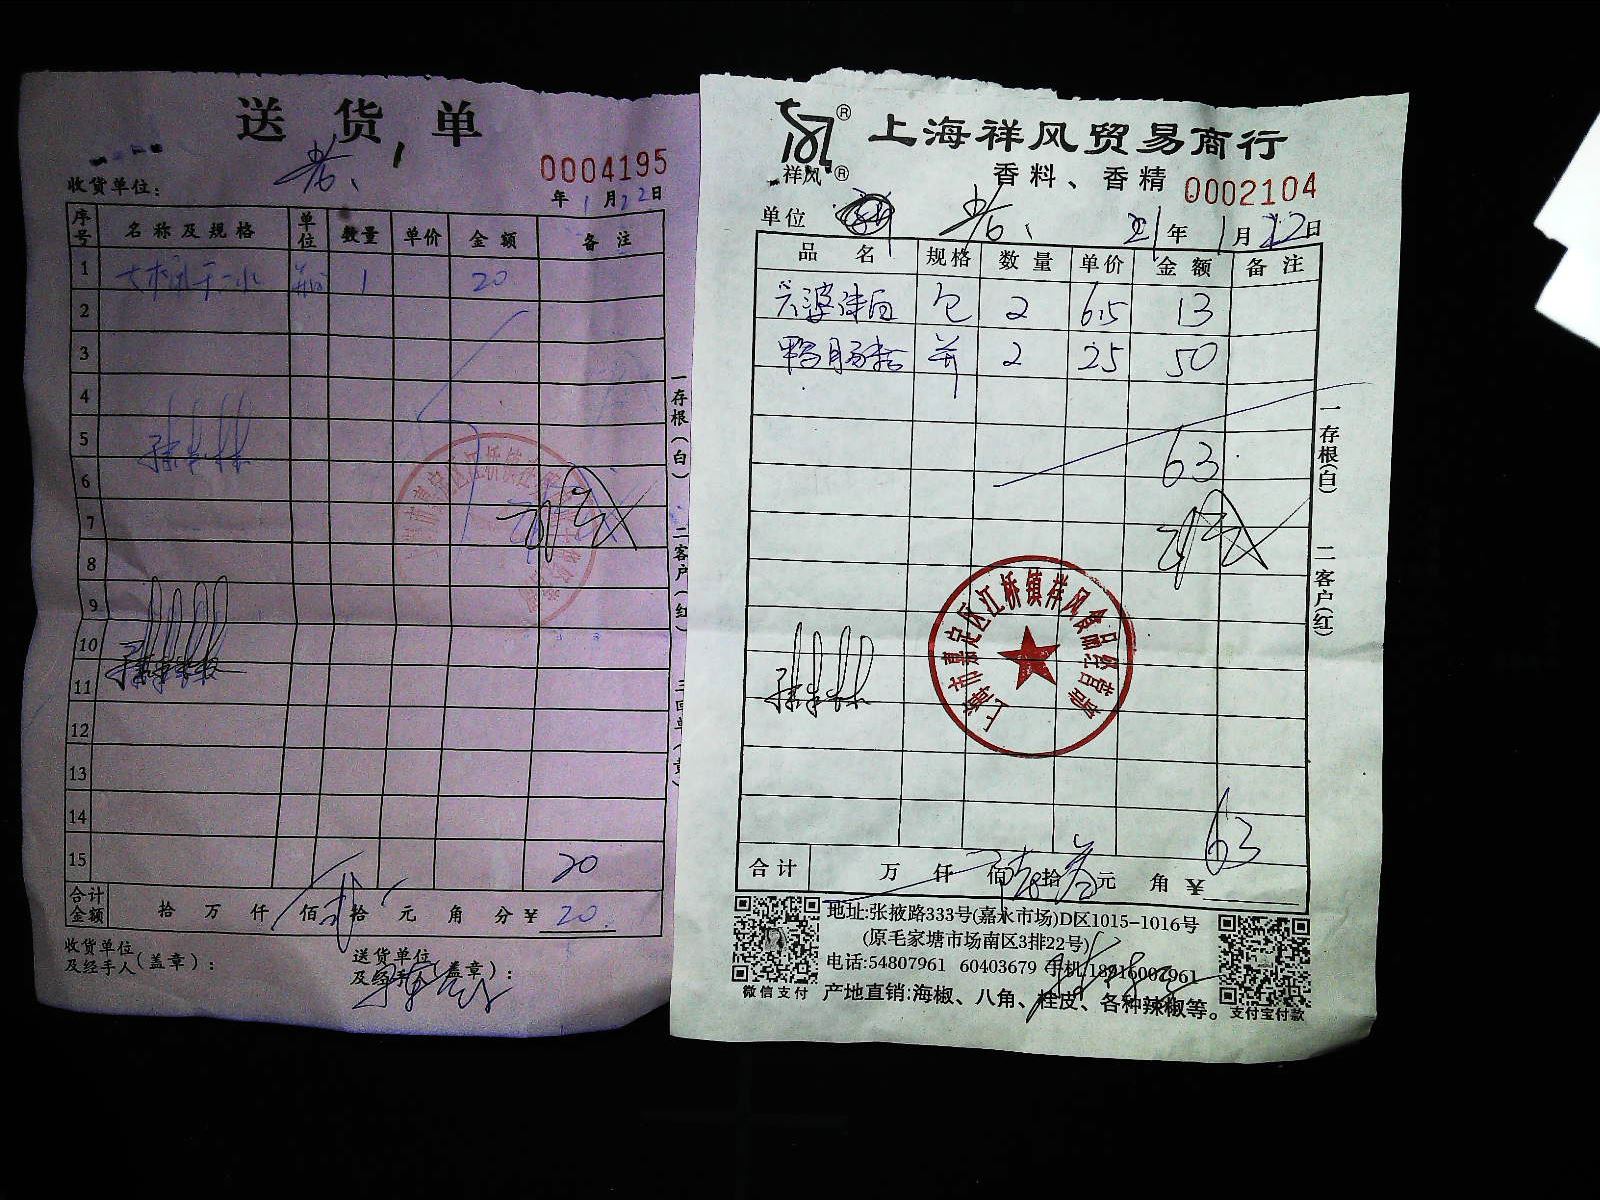 送货单
0004195
收货单位：
年 1 月 22 日
序号 名称及规格 单位 数量 单价 金额 备注
1 1 20
2
3
4
5
6
7
8
9
10
11
12
13
14
15 20
合计金额 拾 万 仟 佰 贰 拾 元 角 分 ¥ 20
收货单位及经手人(盖章)：
送货单位及经手人(盖章)：
一存根(白) 二客户(红)
祥风
上海祥风贸易商行
香料、香精 0002104
单位
21 年 1 月 22 日
品名 规格 数量 单价 金额 备注
包 2 6.5 13
2 25 50
63
上海市嘉定区江桥镇祥风食品经营部
63
合计 万 仟 佰 陆 拾 叁 元 角 ¥
一存根(白) 二客户(红)
地址:张掖路333号(嘉永市场)D区1015-1016号
(原毛家塘市场南区3排22号)
电话:54807961 60403679 手机:18916007961
产地直销:海椒、八角、桂皮、各种辣椒等。
微信支付
支付宝付款